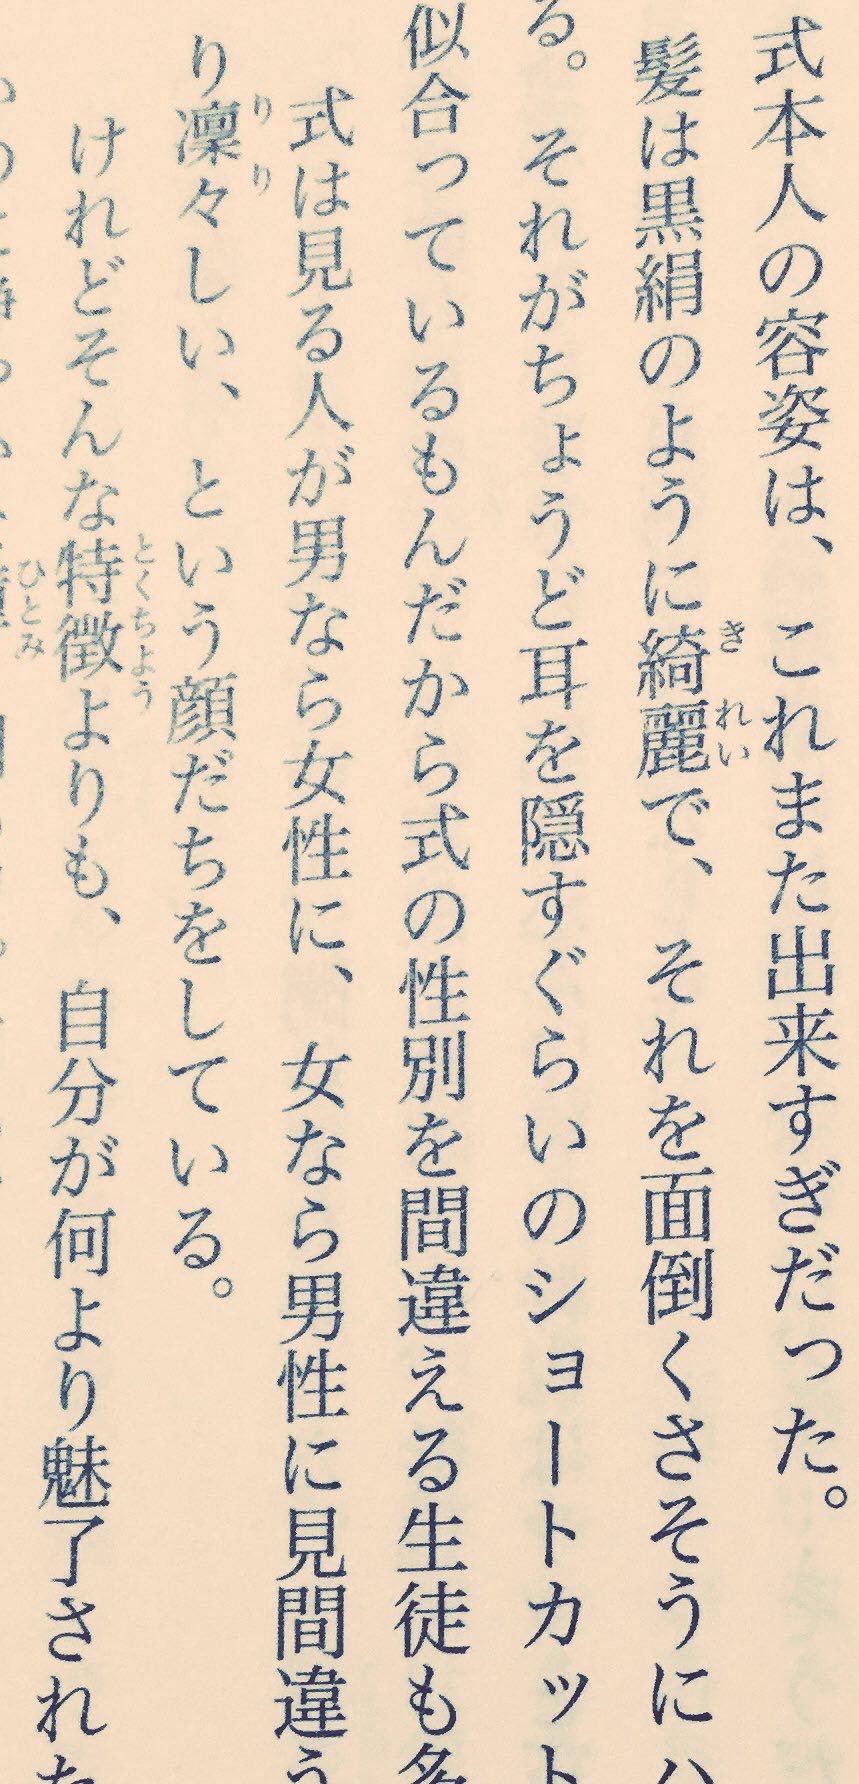 式本人の容姿は、これまた出来すぎだった。
髪は黒絹のように綺麗で、それを面倒くさそうにハ
る。それがちょうど耳を隠すぐらいのショートカット
似合っているもんだから式の性別を間違える生徒も多
式は見る人が男なら女性に、女なら男性に見間違う
り凜々しい、という顔だちをしている。
けれどそんな特徴よりも、自分が何より魅了された